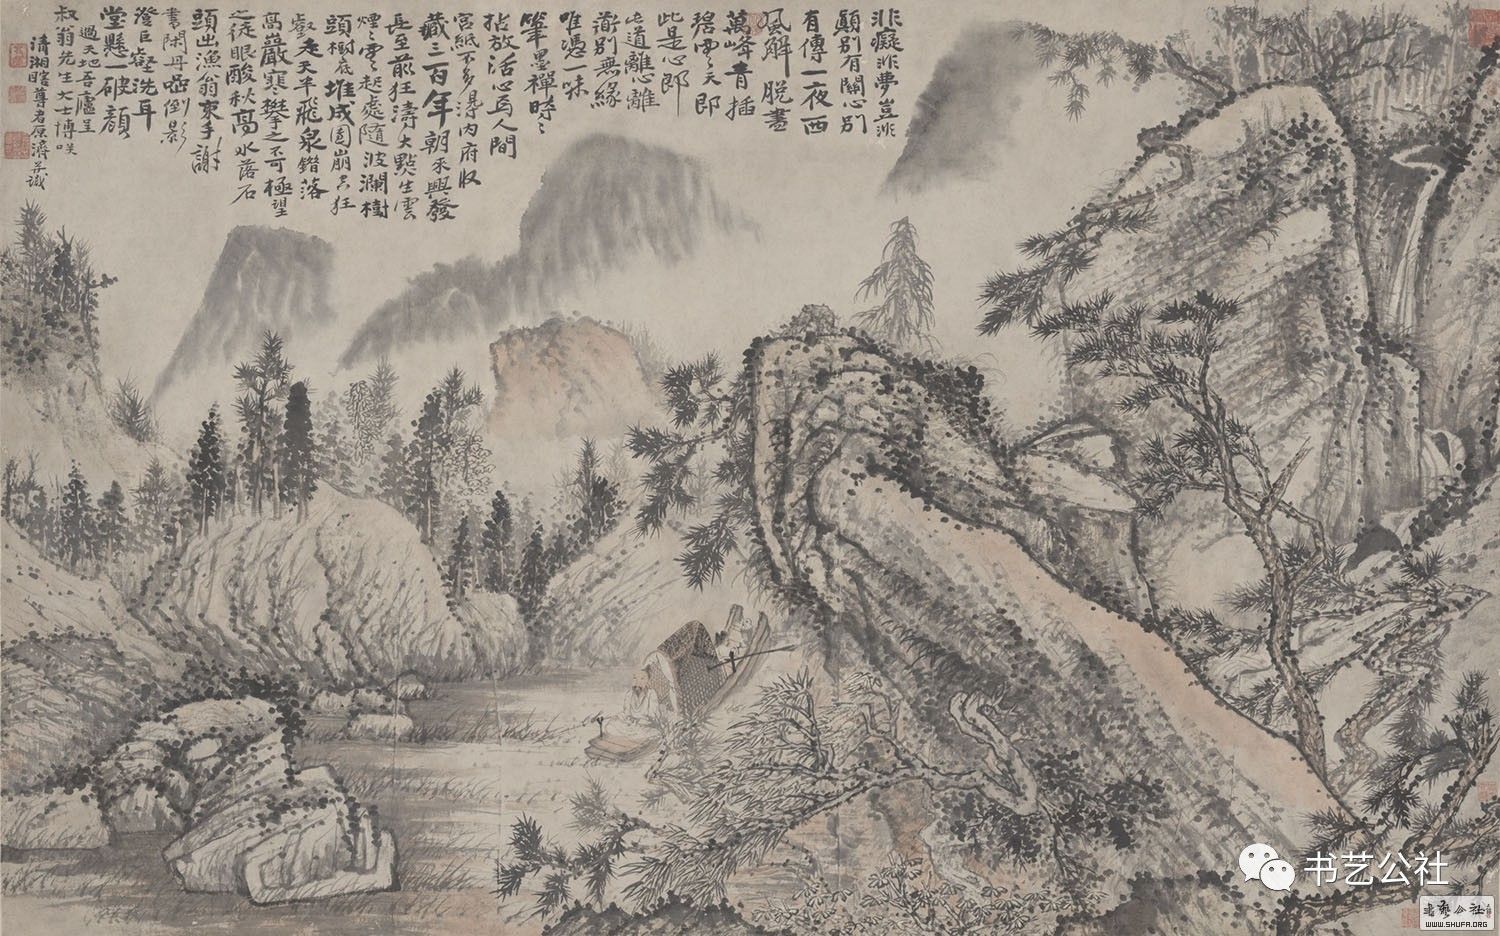 非癡非夢豈非
顛別有關心別
有傳一夜西
風解脫盡
萬峰青插
碧雲天即
此是心即
離心離
道
別無緣
唯憑一味
筆墨禪時〻
拈放活心為人間
宮紙不多得內府收
藏三百年朝來興發
長至前狂濤大點生雲
煙〻雲起處隨波瀾樹
頭樹底堆成團崩空狂
走天半飛泉錯落
高巖寒攀之不可極望
之徒眼酸秋高水落石
頭出漁翁束手謝
書閑丹壑倒影
澄巨壑洗耳
堂懸一破顏
過天地吾廬呈
叔翁先生大士博笑
清湘瞎尊者原濟并識
书艺公社
書藝公社
WWW.SHUFA.ORG